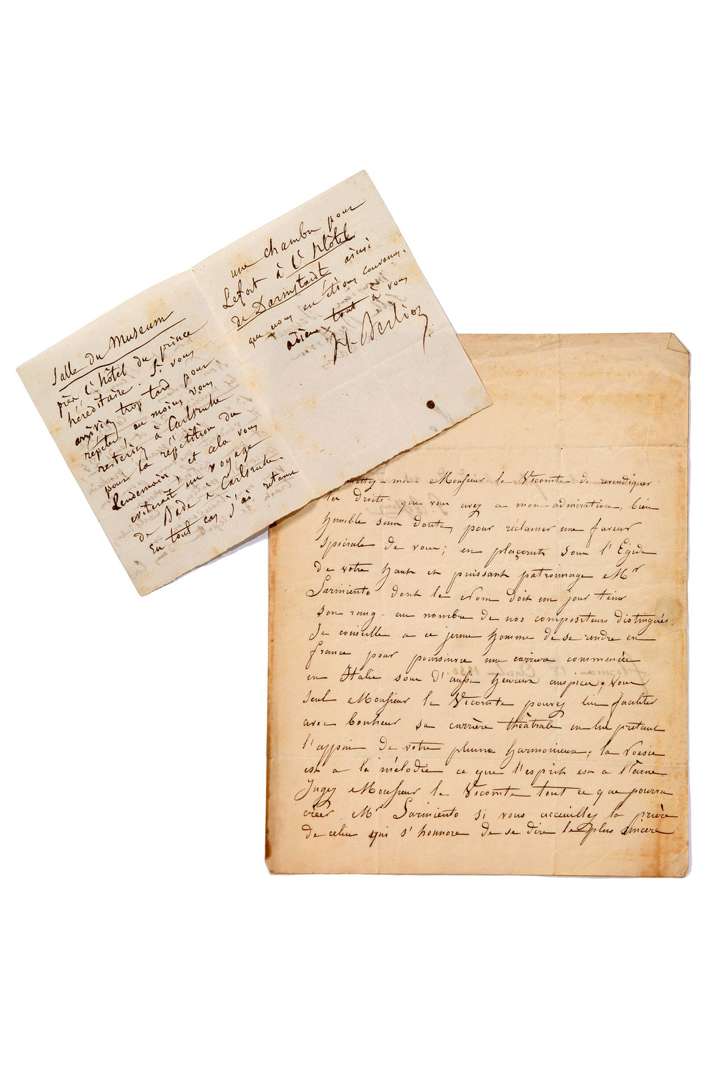 Salle du Museum
près l'hôtel du prince
héréditaire. Si vous
arriviez trop tard pour
répéter au moins vous
resteriez à Carlsruhe
pour la répétition du
lendemain et cela vous
eviterait un voyage
de Bade à Carlsruhe
En tout cas j'ai retenu
une chambre pour
Lefort à l'hôtel
de Darmstadt ainsi
que nous en étions convenus.
adieu tout à vous
H. Berlioz
moi Monsieur le Vicomte de revendiquer
les droits que vous avez a mon admiration, bien
humble sans doute, pour réclamer une faveur
spéciale de vous; en plaçant sous l'Egide
de votre haut et puissant patronnage Mr
Sarmiento dont le Nom doit un jour tenir
son rang au nombre de nos compositeurs distingués.
Je conseille a ce jeune homme de se rendre en
france pour poursuivre une carriere commencée
en Italie sous d'aussi heureux auspices; Vous
seul Monsieur le Vicomte pouvez lui faciliter
avec bonheur sa carrière théâtrale en lui prêtant
l'appui de votre plume harmonieuse; la Poesie
est a la mélodie ce que l'esprit est a l'âme
Jugez Monsieur le Vicomte tout ce que pourra
créer Mr Sarmiento si vous accueillez la prière
de celui qui s'honnore de se dire le plus sincère